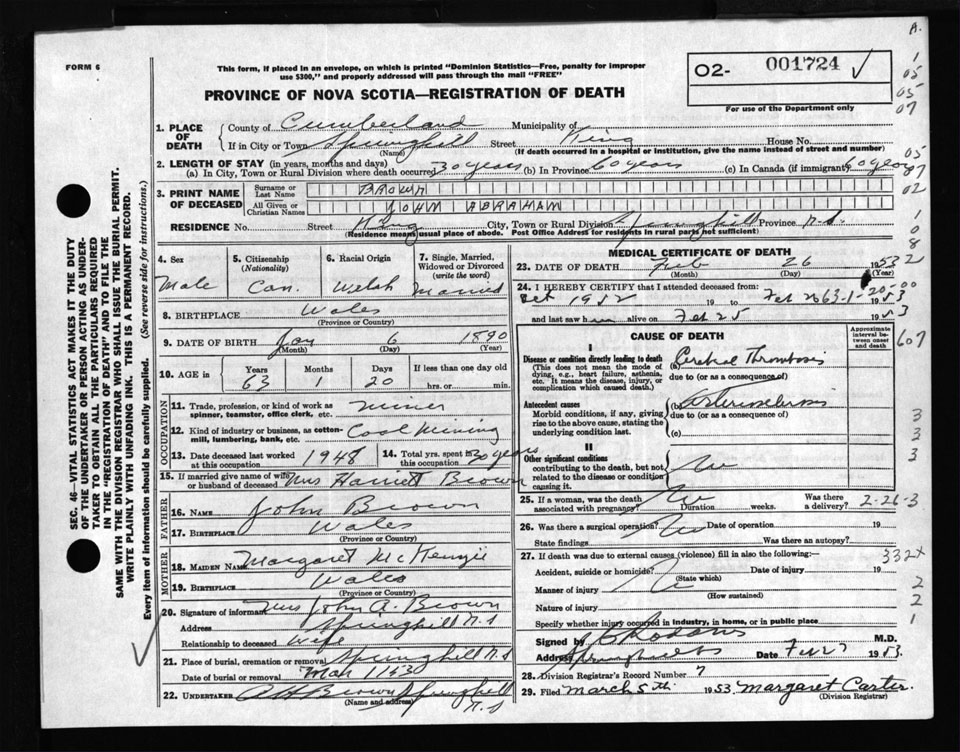 FORM 6
This form, if placed in an envelope, on which is printed "Dominion Statistics—Free, penalty for improper
use $300," and properly addressed will pass through the mail "FREE"
O2- 001724
For use of the Department only
PROVINCE OF NOVA SCOTIA—REGISTRATION OF DEATH
A.
1
05
05
07
05
87
02
1
0
8
2
1. PLACE OF DEATH
County of Cumberland Municipality of
If in City or Town Springhill Street King House No.
(Name) (If death occurred in a hospital or institution, give the name instead of street and number)
2. LENGTH OF STAY (in years, months and days)
(a) In City, Town or Rural Division where death occurred 30 years (b) In Province 60 years (c) In Canada (if immigrant) 60 years
3. PRINT NAME OF DECEASED
Surname or Last Name BROWN
All Given or Christian Names JOHN ABRAHAM
RESIDENCE No. Street King City, Town or Rural Division Springhill Province N.S.
(Residence means usual place of abode. Post Office Address for residents in rural parts not sufficient)
4. Sex
Male
5. Citizenship
(Nationality)
Can.
6. Racial Origin
Welsh
7. Single, Married,
Widowed or Divorced
(write the word)
Married
8. BIRTHPLACE Wales
(Province or Country)
9. DATE OF BIRTH Jan 6 1890
(Month) (Day) (Year)
10. AGE in Years Months Days If less than one day old
63 1 20 hrs. or min.
OCCUPATION
11. Trade, profession, or kind of work as
spinner, teamster, office clerk, etc. Miner
12. Kind of industry or business, as cotton-
mill, lumbering, bank, etc. Coal Mining
13. Date deceased last worked
at this occupation 1948
14. Total yrs. spent in
this occupation 30 years
15. If married give name of wife
or husband of deceased Mrs Harriet Brown
FATHER
16. NAME John Brown
17. BIRTHPLACE Wales
(Province or Country)
MOTHER
18. MAIDEN NAME Margaret McKenzie
19. BIRTHPLACE Wales
(Province or Country)
20. Signature of informant Mrs John A. Brown
Address Springhill N.S
Relationship to deceased Wife
21. Place of burial, cremation or removal Springhill N.S
Date of burial or removal Mar 1
22. UNDERTAKER Brown Springhill
(Name and address)
N.S
MEDICAL CERTIFICATE OF DEATH
23. DATE OF DEATH Feb 26 1953
(Month) (Day) (Year)
24. I HEREBY CERTIFY that I attended deceased from:
Oct 1952 19 to Feb 26 1953
63-1-20-00
and last saw him alive on Feb 25 1953
CAUSE OF DEATH
Approximate
interval be-
tween onset
and death
607
I
Disease or condition directly leading to death
(This does not mean the mode of
dying, e.g., heart failure, asthenia,
etc. It means the disease, injury, or
complication which caused death.)
(a) Cerebral Thrombosis
due to (or as a consequence of)
Antecedent causes
Morbid conditions, if any, giving
rise to the above cause, stating the
underlying condition last.
(b) Arteriosclerosis
due to (or as a consequence of)
(c)
3
3
3
3
II
Other significant conditions
contributing to the death, but not
related to the disease or condition
causing it.
No
25. If a woman, was the death
associated with pregnancy? No Duration weeks. Was there
a delivery?
2-26-3
26. Was there a surgical operation? No Date of operation 19
State findings Was there an autopsy?
27. If death was due to external causes (violence) fill in also the following:
332+
Accident, suicide or homicide? Date of injury 19
(State which)
Manner of injury
(How sustained)
Nature of injury
2
2
1
Specify whether injury occurred in industry, in home, or in public place
Signed by M.D.
Address Springhill Date Feb 27 1953
28. Division Registrar's Record Number 7
29. Filed March 5th 1953 Margaret Carter.
(Division Registrar)
SEC. 46—VITAL STATISTICS ACT MAKES IT THE DUTY
OF THE UNDERTAKER OR PERSON ACTING AS UNDER-
TAKER TO OBTAIN ALL THE PARTICULARS REQUIRED
IN THE "REGISTRATION OF DEATH" AND TO FILE THE
SAME WITH THE DIVISION REGISTRAR WHO SHALL ISSUE THE BURIAL PERMIT.
WRITE PLAINLY WITH UNFADING INK. THIS IS A PERMANENT RECORD.
Every item of information should be carefully supplied. (See reverse side for instructions.)